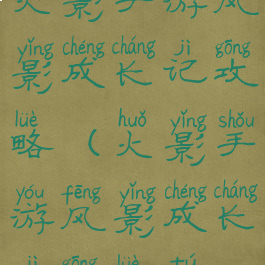 火影手游风
yǐng chéng cháng jì gōng
影成长记攻
lüè huǒ yǐng shǒu
略（火影手
yóu fēng yǐng chéng cháng
游风影成长
jì gōng lüè